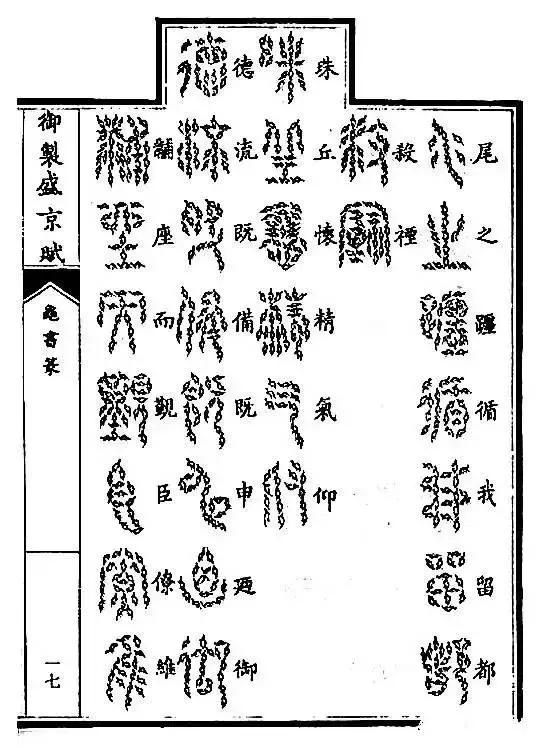 尾之疆循我留都
殺禋
珠丘懷精氣仰
德流既備既申廼御
黼座而覲臣僚維
御製盛京賦
龜書篆
一七